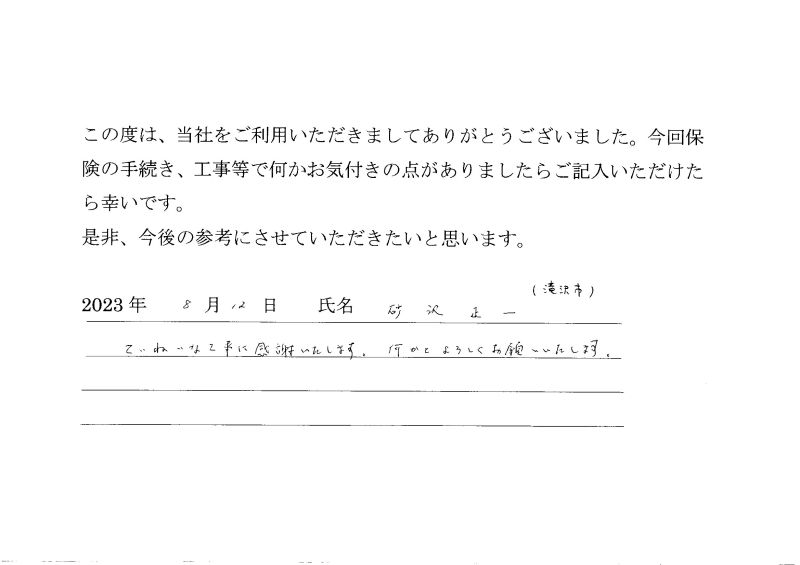 この度は、当社をご利用いただきましてありがとうございました。今回保
険の手続き、工事等で何かお気付きの点がありましたらご記入いただけた
ら幸いです。
是非、今後の参考にさせていただきたいと思います。
(滝沢市)
2023年 8月12日 氏名 砂沢正一
ていねいな工事に感謝いたします。何かとよろしくお願いいたします。